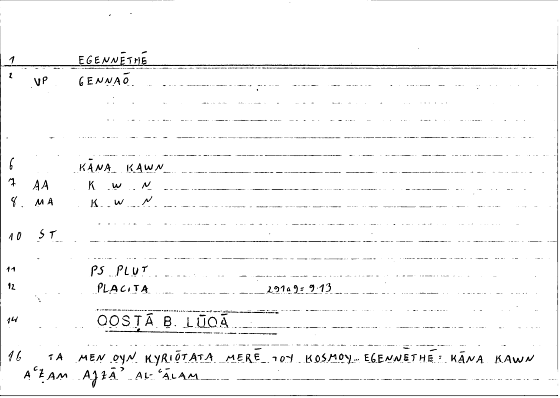 1 EGENNĒTHĒ
2 VP GENNAŌ
6 KĀNA KAWN
7 AA K W N
8 MA K W N
10 ST
11 PS PLUT
12 PLACITA
14 QOSṬĀ B. LŪQĀ
16 TA MEN OYN KYRIŌTATA MERĒ TOY KOSMOY EGENNĒTHĒ: KĀNA KAWN
AʿẒAM AǦZĀʾ AL-ʿĀLAM